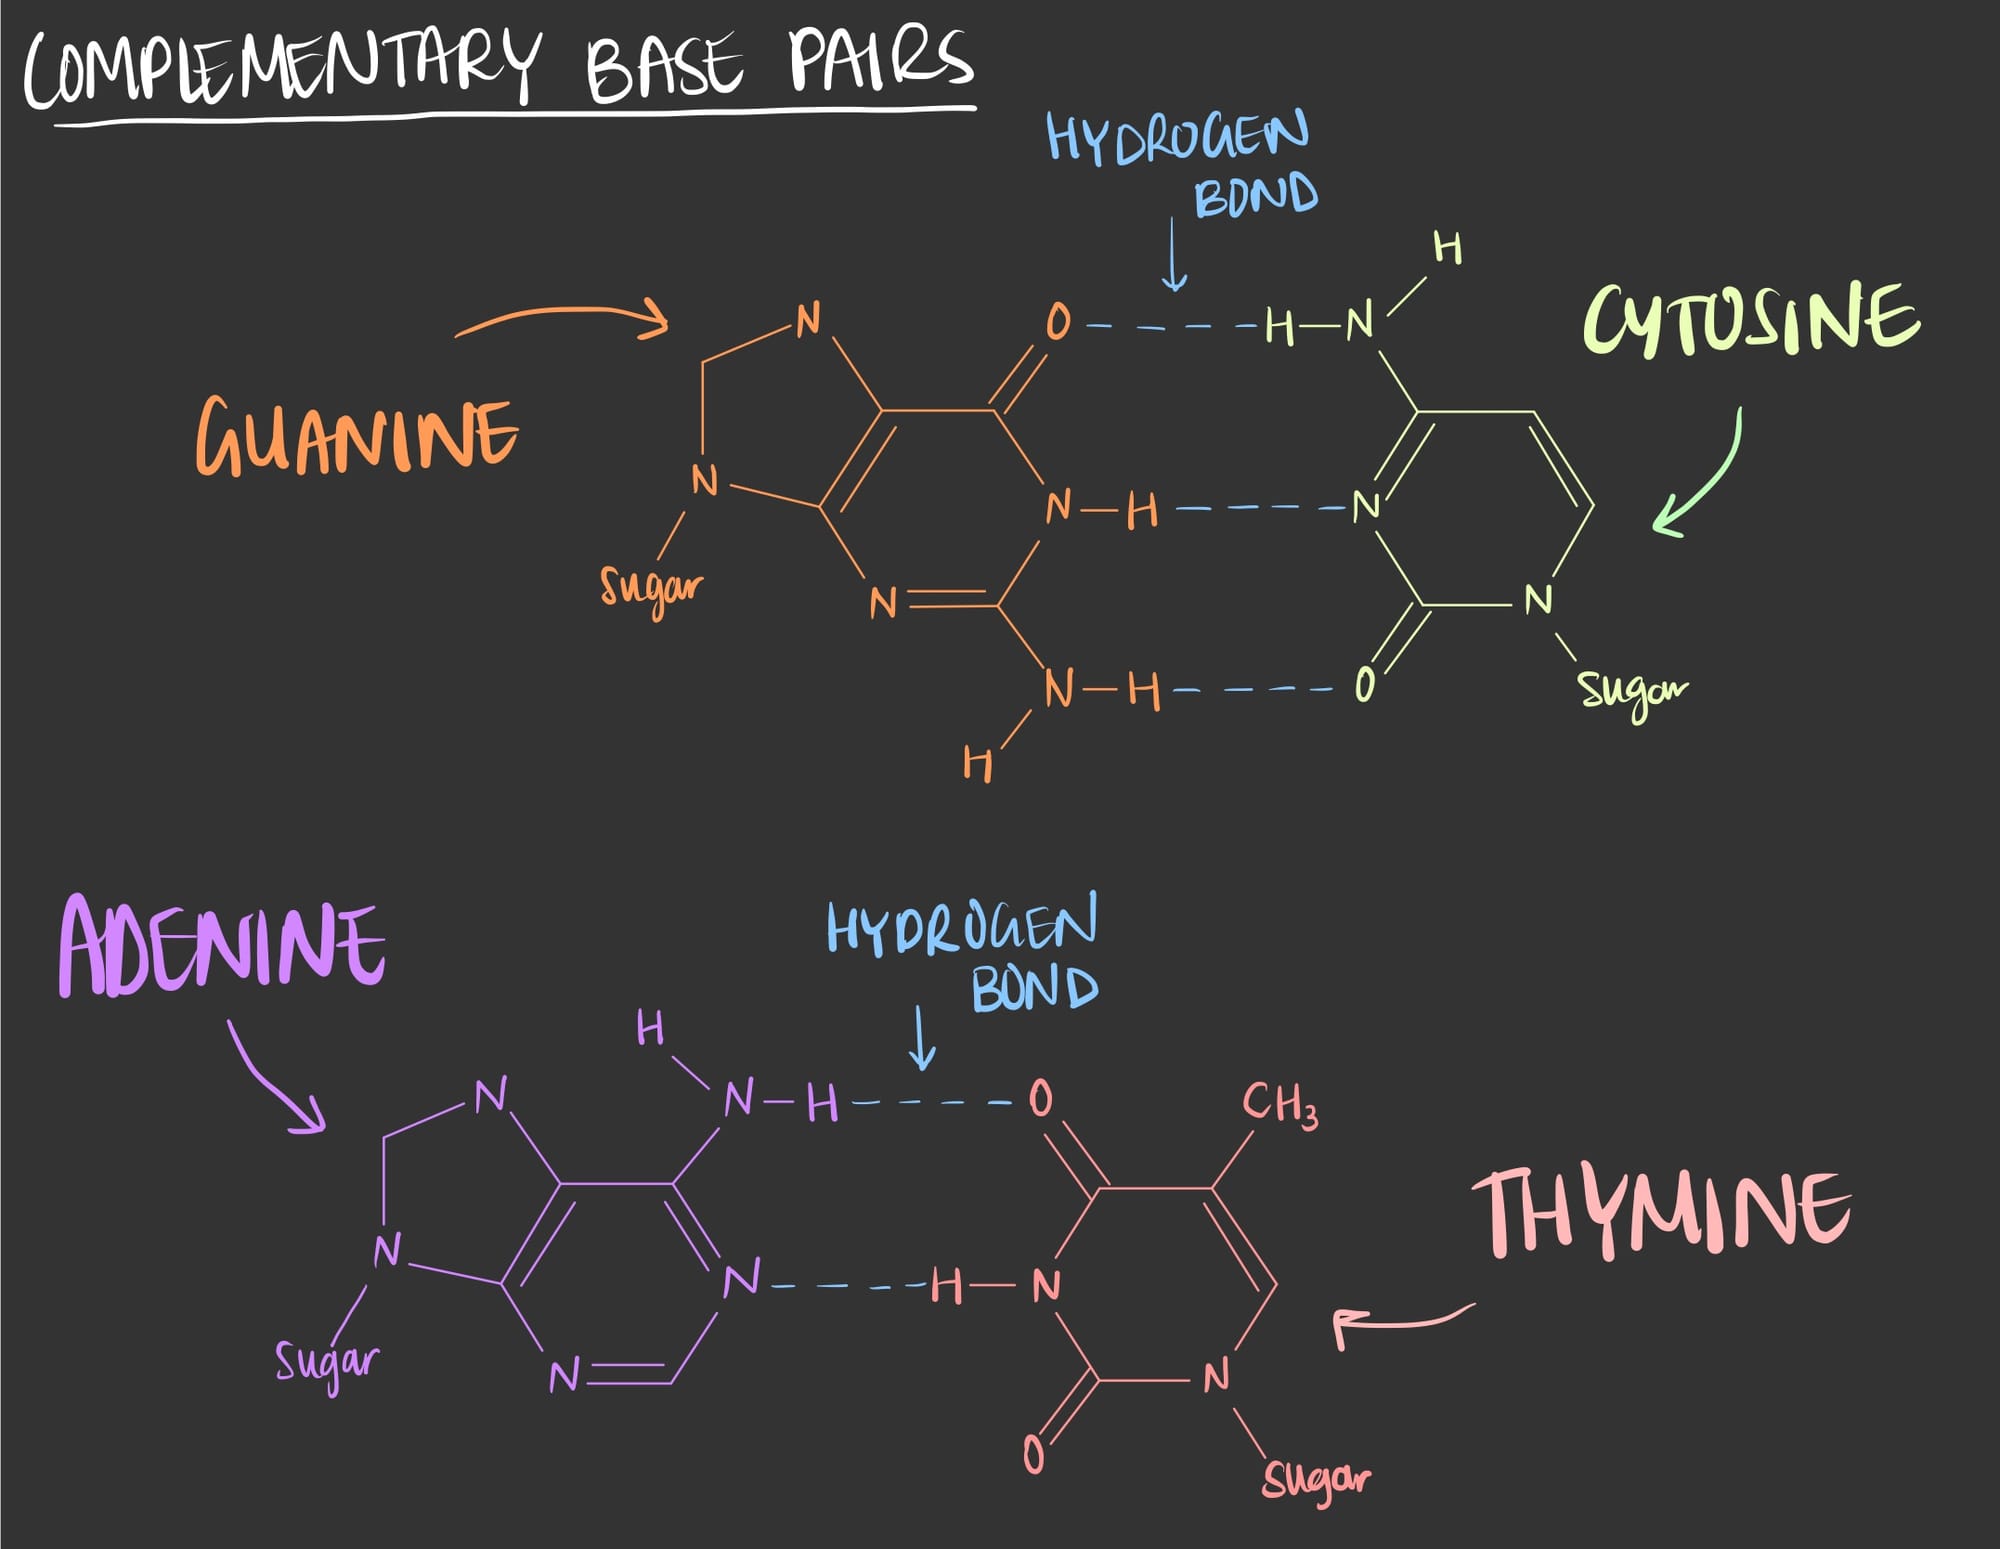 COMPLEMENTARY BASE PAIRS
HYDROGEN
BOND
H
GUANINE
N
O
H
N
CYTOSINE
N
N
H
N
Sugar
N
N
N
H
O
Sugar
H
ADENINE
HYDROGEN
BOND
H
N
N
H
O
CH3
THYMINE
N
N
H
N
Sugar
N
N
O
Sugar